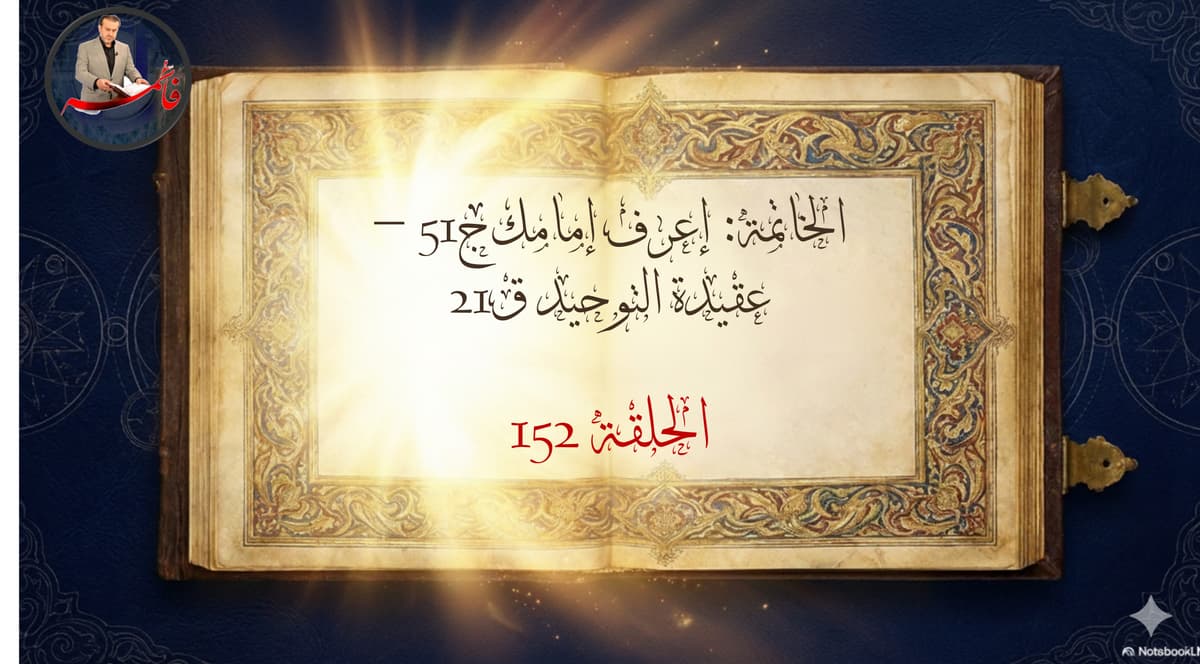 فاطمة
الخاتمة: إعرف إمامك ج51 –
عقيدة التوحيد ق21
الحلقة 152
NotsbookLI